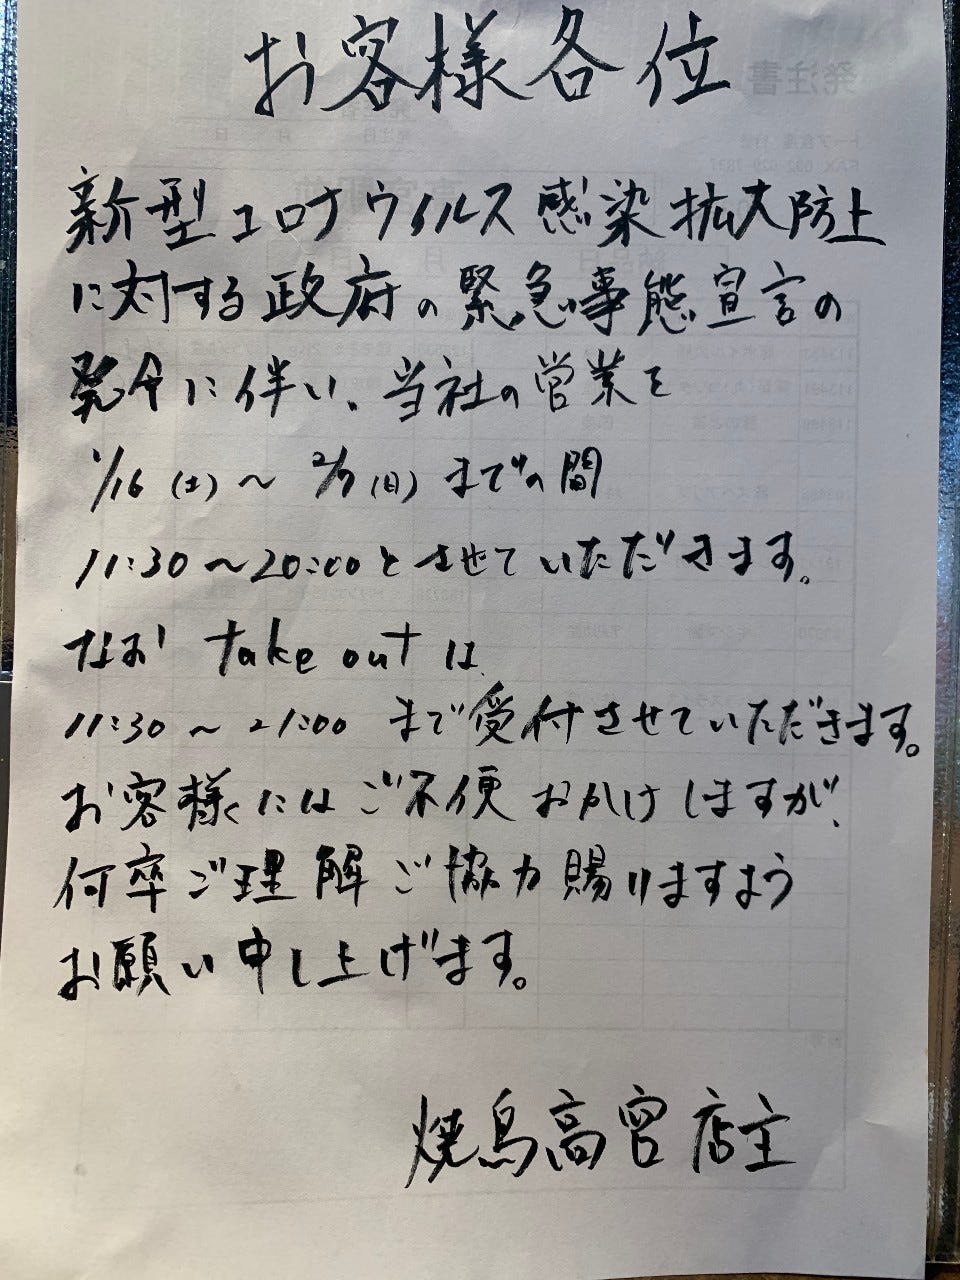 お客様各位
新型コロナウイルス感染拡大防止
に対する政府の緊急事態宣言の
発令に伴い、当社の営業を
1/16(土)〜2/7(日)までの間
11:30〜20:00とさせていただきます。
なお take out は
11:30〜21:00 まで受付させていただきます。
お客様にはご不便おかけしますが、
何卒ご理解ご協力賜りますよう
お願い申し上げます。
焼鳥高宮 店主